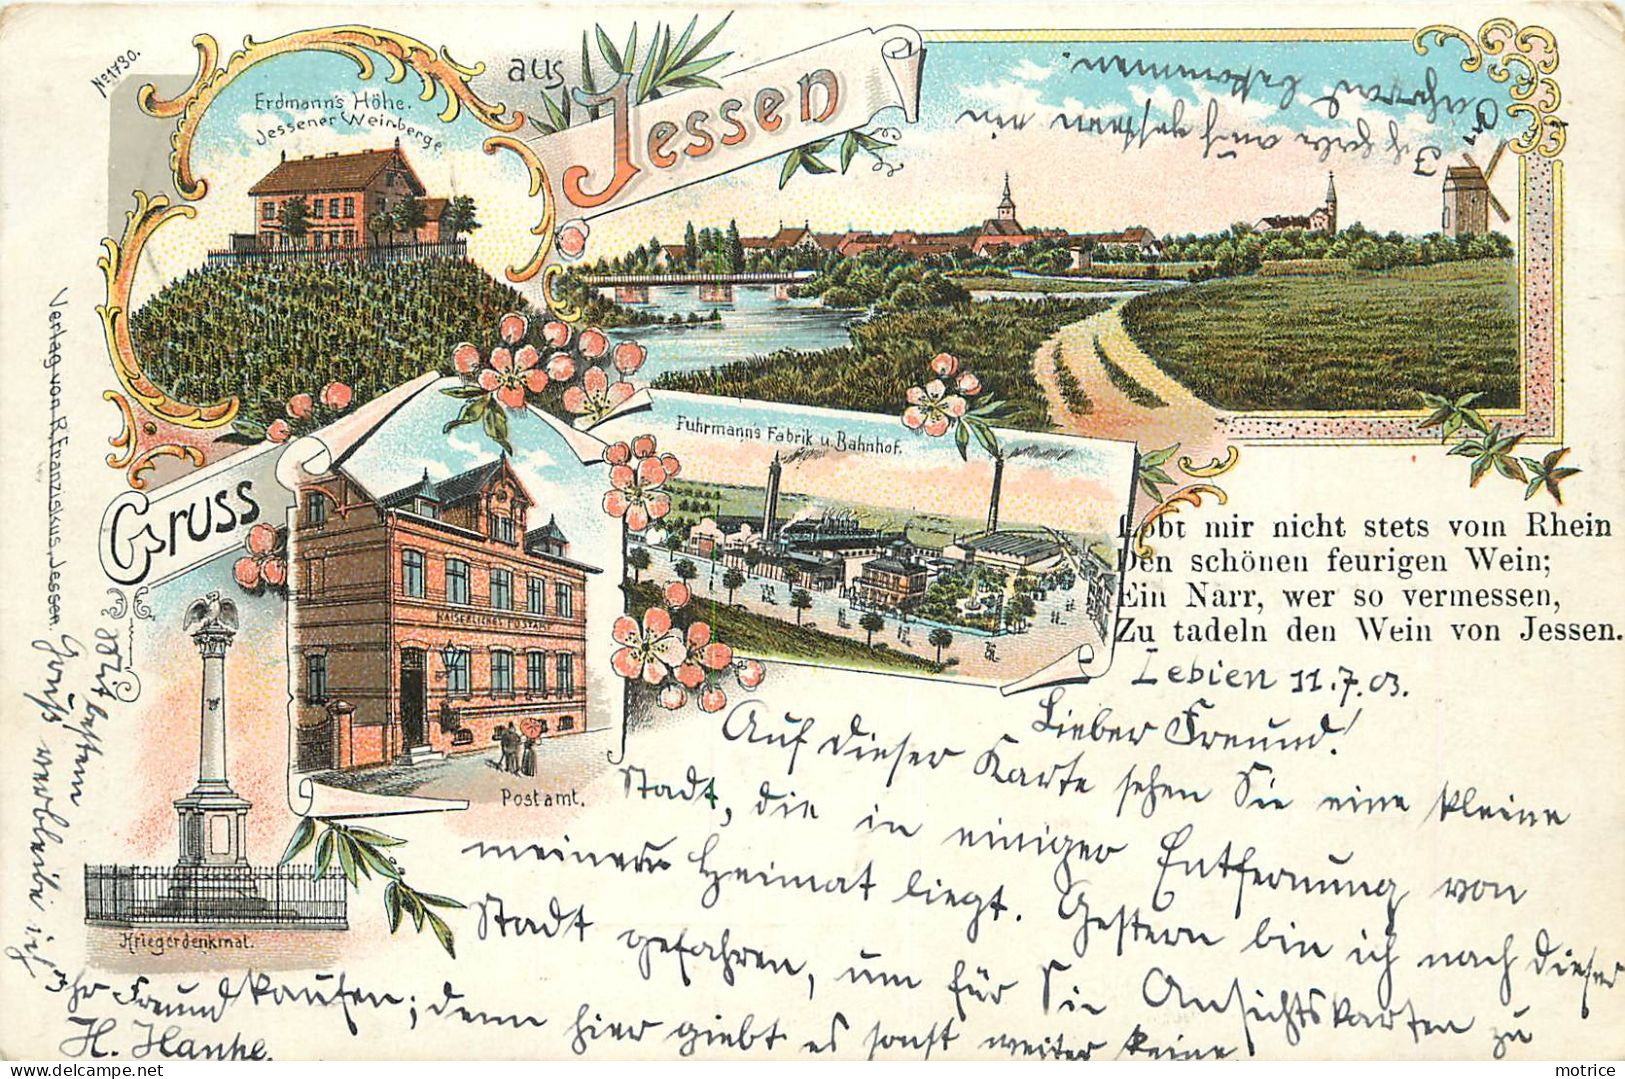 No 1730.
Erdmann's Höhe.
Jessener Weinberge.
Gruss
aus
Jessen
Fuhrmann's Fabrik u. Bahnhof.
KAISERLICHES POSTAMT
Postamt.
Kriegerdenkmal.
Verlag von R. Franziskus, Jessen.
Lobt mir nicht stets vom Rhein
Den schönen feurigen Wein;
Ein Narr, wer so vermessen,
Zu tadeln den Wein von Jessen.
Lebien 11.7.03.
Lieber Freund!
Auf dieser Karte sehen Sie eine kleine
Stadt, die in einiger Entfernung von
meiner Heimat liegt. Gestern bin ich nach dieser
Stadt gefahren, um für Sie Ansichtskarten zu
kaufen; denn hier giebt es sonst weiter keine
Ich habe auch gestern ein
bekommen.
Mit bestem
Gruß verbleibe ich
Ihr Freund
H. Hanke.
motrice